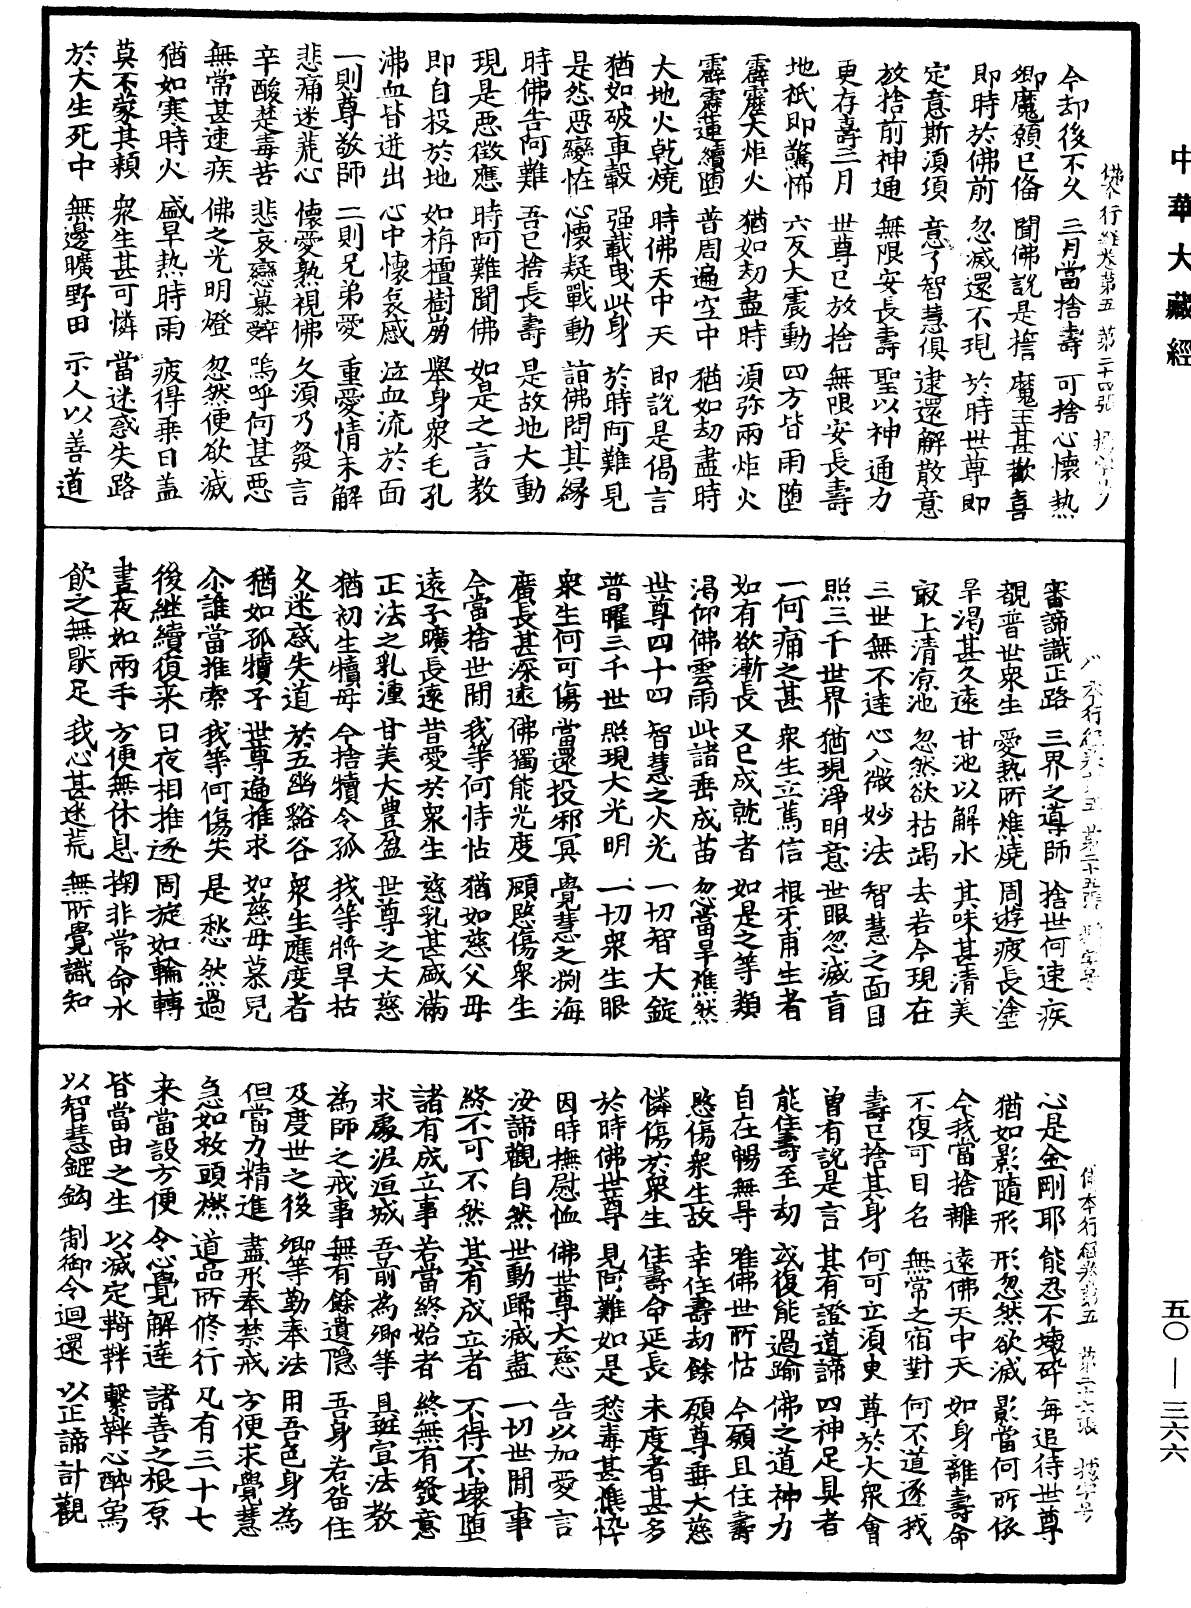 中華大藏經
今却後不久 三月當捨壽 可捨心懷熱
卿魔願已俻 聞佛說是誓 魔王甚歡喜
即時於佛前 忽滅還不現 於時世尊即
定意斯須頃 意了智慧俱 逮還解散意
放捨前神通 無限安長壽 聖以神通力
更存壽三月 世尊已放捨 無限安長壽
地祇即驚怖 六反大震動 四方皆雨墮
霹靂大炸火 猶如劫盡時 須弥兩炸火
霹靂蓮續墮 普周遍空中 猶如劫盡時
大地火乾燒 時佛天中天 即說是偈言
猶如破車轂 强載曳此身 於時阿難見
是怨惡變恠 心懷疑戰動 諮佛問其緣
時佛告阿難 吾已捨長壽 是故地大動
現是惡徵應 時阿難聞佛 如是之言教
即自投於地 如栴檀樹崩 舉身衆毛孔
沸血皆迸出 心中懷哀慼 泣血流於面
一則尊敬師 二則兄弟愛 重愛情未解
悲痛迷荒心 懷愛熟視佛 久須乃發言
辛酸楚毒苦 悲哀戀慕辭 嗚呼何甚惡
無常甚速疾 佛之光明燈 忽然便欲滅
猶如寒時火 盛旱熱時雨 疲得乗日盖
莫不蒙其賴 衆生甚可憐 當迷惑失路
於大生死中 無邊曠野田 示人以善道
審諦識正路 三界之導師 捨世何速疾
觀普世衆生 愛熱所燋燒 周遊疲長塗
旱渴甚久遠 甘池以解水 其味甚清美
㝡上清涼池 忽然欲枯竭 去若今現在
三世無不達 心入微妙法 智慧之面目
照三千世界 猶現淨明意 世眼忽滅盲
一何痛之甚 衆生立篤信 根牙甫生者
如有欲漸長 又已成就者 如是之等類
渴仰佛雲雨 此諸垂成苗 忽當旱燋然
世尊四十四 智慧之火光 一切智大錠
普曜三千世 照現大光明 一切衆生眼
衆生何可傷 當還投邪冥 覺慧之渕海
廣長甚深遠 佛獨能光度 頋愍傷衆生
今當捨世間 我等何恃怙 猶如慈父母
遠子曠長逺 昔愛於衆生 慈乳甚盛滿
正法之乳湩 甘美大豊盈 世尊之大慈
猶初生犢母 今捨犢令孤 我等將旱枯
久迷惑失道 於五幽谿谷 衆生應度者
猶如孤犢子 世尊遍推求 如慈母慕兒
尒誰當推索 我等何傷失 是愁 然過
後継續復来 日夜相推逐 周旋如輪轉
晝夜如兩手 方便無休息 掬非常命水
飲之無猒足 我心甚迷荒 無所覺識知
心是金剛耶 能忍不壞碎 每追待世尊
猶如影隨形 形忽然欲滅 影當何所依
今我當捨離 遠佛天中天 如身離壽命
不復可目名 無常之宿對 何不道逐我
壽已捨其身 何可立須臾 尊於大衆會
曾有說是言 其有證道諦 四神足具者
能住壽至劫 或復能過踰 佛之道神力
自在暢無㝵 唯佛世所怙 今願且住壽
愍傷衆生故 幸住壽劫餘 願尊垂大慈
憐傷於衆生 住壽命延長 未度者甚多
於時佛世尊 見阿難如是 愁毒甚憔悴
因時撫慰恤 佛世尊大慈 告以加愛言
汝諦觀自然 世動歸滅盡 一切世間事
終不可不然 其有成立者 不得不壞墮
諸有成立事 若當終始者 終無有發意
求處泥洹城 吾前為卿等 具班宣法教
為師之戒事 無有餘遺隱 吾身若畄住
及度世之後 卿等勤奉法 用吾色身為
但當力精進 盡形奉禁戒 方便求覺慧
急如救頭燃 道品所修行 凡有三十七
来當設方便 令心覺解達 諸善之根原
皆當由之生 以滅定鞿靽 繫靽心醉鳥
以智慧鋰鈎 制御令迴還 以正諦計觀
五〇—三六六